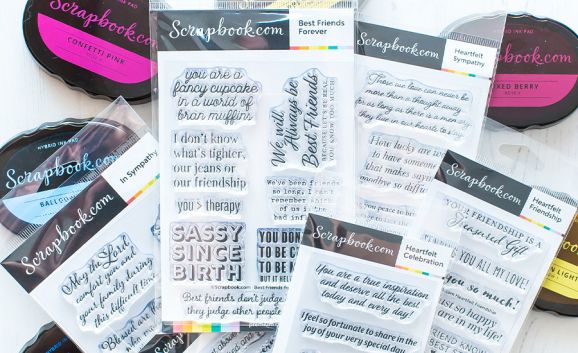 HYBRID INK PAD
Scrapbook.com
CONFETTI PINK
Scrapbook.com
Best Friends
Forever
you are a
fancy cupcake
in a world of
bran muffins
I don't know
what's tighter,
our jeans or
our friendship
you > therapy
SASSY
SINCE
BIRTH
We will
Always be
Best Friends
BECAUSE LET'S BE REAL,
YOU KNOW TOO MUCH!
We've been friends
so long, I can't
remember which
of us is the
bad infl
YOU DON
TO BE C
TO BE
BUT IT HEL
Best friends don't judge
they judge other people
©Scrapbook.com
Best Friends
Scrapbook.com
Heartfelt
Sympathy
Those we love can never be
more than a thought away
for as long as there is a mem
they live in our hearts to stay
How lucky are w
to have someo
that makes say
goodbye so diffi
Scrapbook.com
XED BERRY
HYBRID INK PAD
Scrapbook.com
BALLOO
In Sympathy
Scrapbook.com
May the Lord
comfort you and
your family during
this difficult time
Blessed are t
Scrapbook.com
Heartfelt
Friendship
YOUR FRIENDSHIP IS A
Treasured Gift
NDING YOU ALL MY LOVE!
you so much!
Heartfelt Friendship
ust so happy
are in my life!
Scrapbook.com
Heartfelt
Celebration
You are a true inspiration
and deserve all the best
today and every day!
I feel so fortunate to share in the
joy of your very special day
N LIGHT